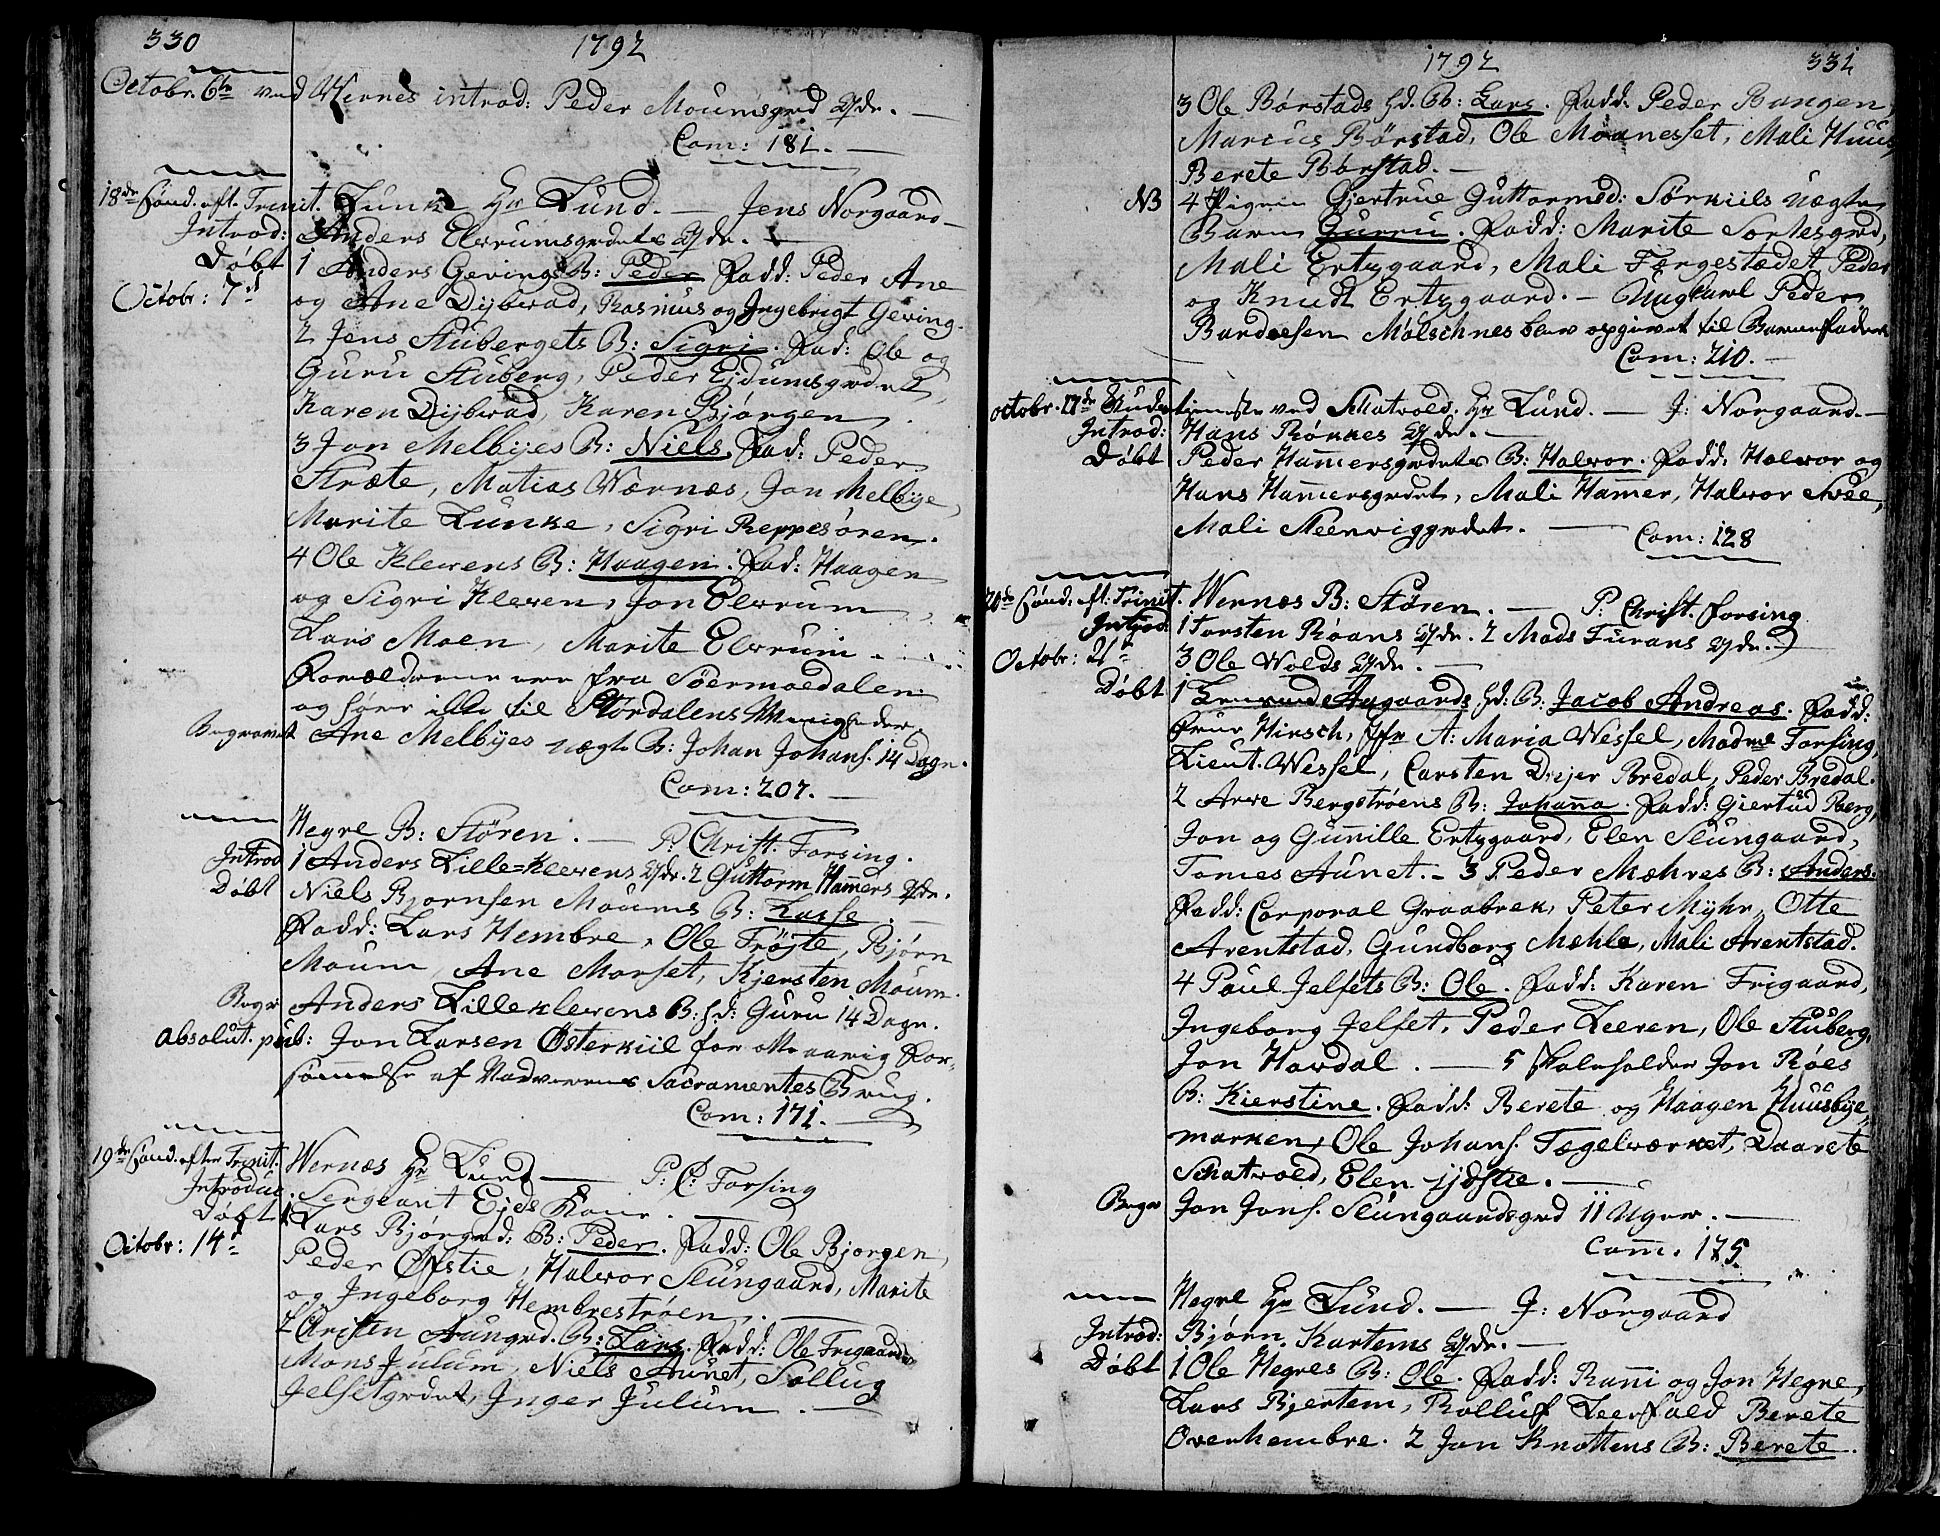 330 1792
Octobr. 6te ved Wernes introd: Peder Moumsgrd qdr. —
Com: 181. —
18de Sønd. eft. Trinit. Lunke Hr Lund. — Jens Norgaard —
Introd: Anders Elvrumsgrdets qdr. —
Døbt 1 Anders Gevings B: Peder Fadd: Peder Ane
Octobr: 7d og Ane Dybvad, Rasmus og Ingebrigt Geving.
2 Jens Stubergets B: Sigri. Fad: Ole og
Guru Stuberg, Peder Ejdumsgrdet,
Karen Dybvad, Karen Bjørgen.
3 Jon Melbyes B: Niels. Fad: Peder
Stræte, Matias Værnæs, Jon Melbye,
Marite Lunke, Sigri Reppesøren.
4 Ole Klevens B: Haagen. Fad: Haagen
og Sigri Kleven, Jon Elvrum,
Lars Moen, Marite Elvrum.
Forældrene ere fra Søermoedalen
og høre ikke til Størdalens Menigheder.
Begravet Ane Melbyes uægte B: Johan Johans. 14 Dage.
Com: 207. —
Hegre B: Støren. — P: Christ: Forsing.
Introd 1 Anders Lille=klevens qdr. 2 Guttorm Hamers qdr.
Døbt Niels Bjornsen Moums B: Lasse. —
Fadd: Lars Hembre, Ole Trøjte, Bjørn
Moum, Ane Morset, Kjersten Moum.
Begr Anders Lilleklevens B: hd: Guru 14 Dage.
Absolut. pub: Jon Larsen Østerkiil for otte aarig For-
sømmelse af Nadverens Sacramentes Brug.
Com: 171. —
19de Sønd. efter Trinit. Wernæs Hr Lund — P: C: Forsing
Introduc. Sergeant Ejds Kone. —
Døbt 1 Lars Bjørgrd: B: Peder. Fadd: Ole Bjorgen,
Octobr: 14d Peder Øfstie, Halvor Slungaard, Marite
og Ingeborg Hembrestrøen. —
2 Cristen Aungrd. B: Lars. Fadd: Ole Frigaard
Mons Julum, Niels Aunet, Sollug
Jelsetgrdet, Inger Julum. —
1792 331
3 Ole Børstads hd. B: Lars. Fadd: Peder Bangen,
Marcus Børstad, Ole Moanesset, Mali Huus,
Berete Børstad. —
NB 4 Pigen Gjertrue Guttormsd: Sørkiils uægte
Barn Guru. Fadd: Marite Sortesgrd,
Mali Ertzgaard, Mali Fergestædet Peder
og Knudt Ertzgaard. — Ungkarl Peder
Bardoesen Mølschnes blev opgivet til Barnefader
Com: 210. —
octobr. 17de Gudstjeneste ved Schatvold. Hr Lund. — J: Norgaard. —
Introd: Hans Røkkes qdr. —
Døbt Peder Hamersgrdets B: Halvor. Fadd: Halvor og
Hans Hamersgrdet, Mali Hamer, Halvor Svee,
Mali Steenviggrdet. —
Com: 128
20de Sønd. eft. Trinit. Wernæs B: Støren. — P: Christ. Forsing
Introd: 1 Torsten Røans qdr. 2 Mads Furans qdr.
Octobr: 21d 3 Ole Wolds qdr. —
Døbt 1 Aagaards hd: B: Jacob Andreas. Fadd:
Frue Hirsch, Jfr A: Maria Wessel, Madme Forsing,
Lieut. Wessel, Carsten Drejer Bredal, Peder Bredal.
2 Arve Bergstrøens B: Johanna. Fadd: Giertud Berg,
Jon og Gunille Ertzgaard, Elen Slungaard,
Tomes Aunet. — 3 Peder Mæhres B: Anders.
Fadd: Corporal Graabrek, Peter Myhr, Otte
Arentstad, Gundborg Mæhle, Mali Arentstad.
4 Paul Jelsets B: Ole. Fadd: Karen Frigaard,
Ingeborg Jelset, Peder Leeren, Ole Stuberg,
Jon Havdal. — 5 Jon Røes
B: Kierstine. Fadd: Berete og Haagen Huusbye-
marken, Ole Johans. Tegelværket, Daarete
Schatvold, Elen —
Begr Jon Jons. Slungaardsgrd 11 Uger. —
Com. 175
Hegre Hr Lund. — J: Norgaard
Introd: Bjørn Kartems qdr. —
Døbt 1 Ole Hegres B: Ole. Fadd: Rani og Jon Hegre,
Lars Bjertem, Rolluf Leerfald Berete
Overhembre. 2 Jon Knottens B: Berete.